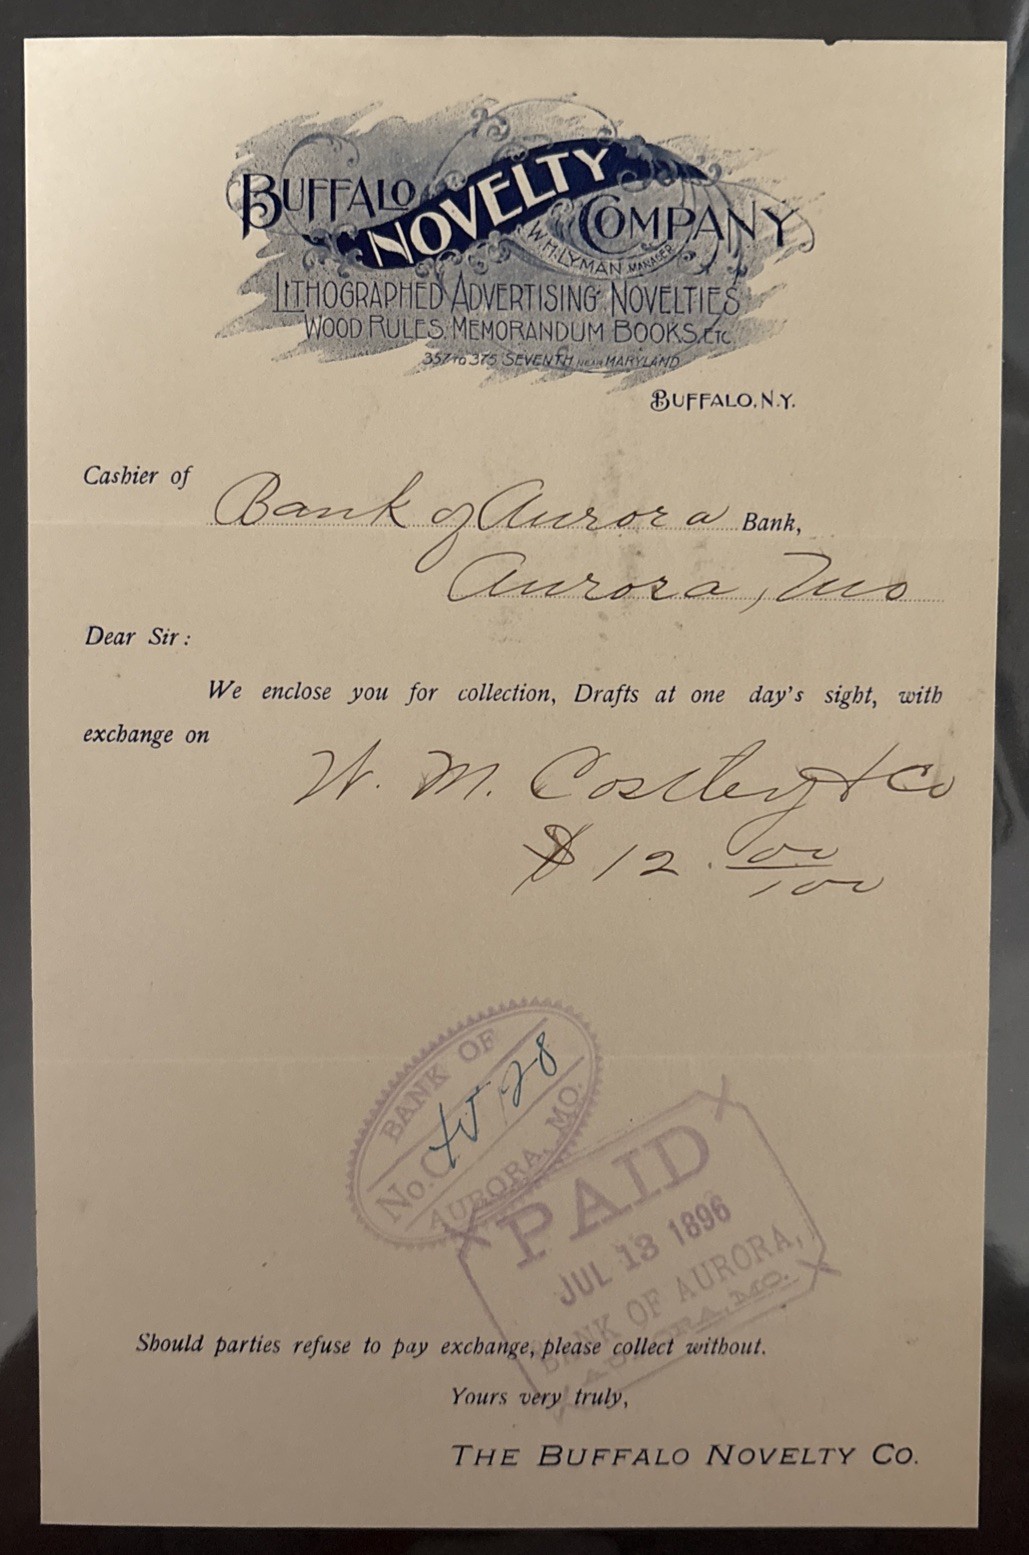 BUFFALO NOVELTY COMPANY
W.H. LYMAN MANAGER
LITHOGRAPHED ADVERTISING NOVELTIES
WOOD RULES, MEMORANDUM BOOKS, ETC.
357 TO 375 SEVENTH NEAR MARYLAND
BUFFALO, N.Y.
Cashier of
Bank of Aurora Bank,
Aurora, Mo
Dear Sir:
We enclose you for collection, Drafts at one day's sight, with
exchange on
W. M. Costley & Co
$12.00/100
BANK OF
No.
AURORA, MO.
PAID
JUL 13 1896
BANK OF AURORA,
AURORA, MO.
Should parties refuse to pay exchange, please collect without.
Yours very truly,
THE BUFFALO NOVELTY CO.